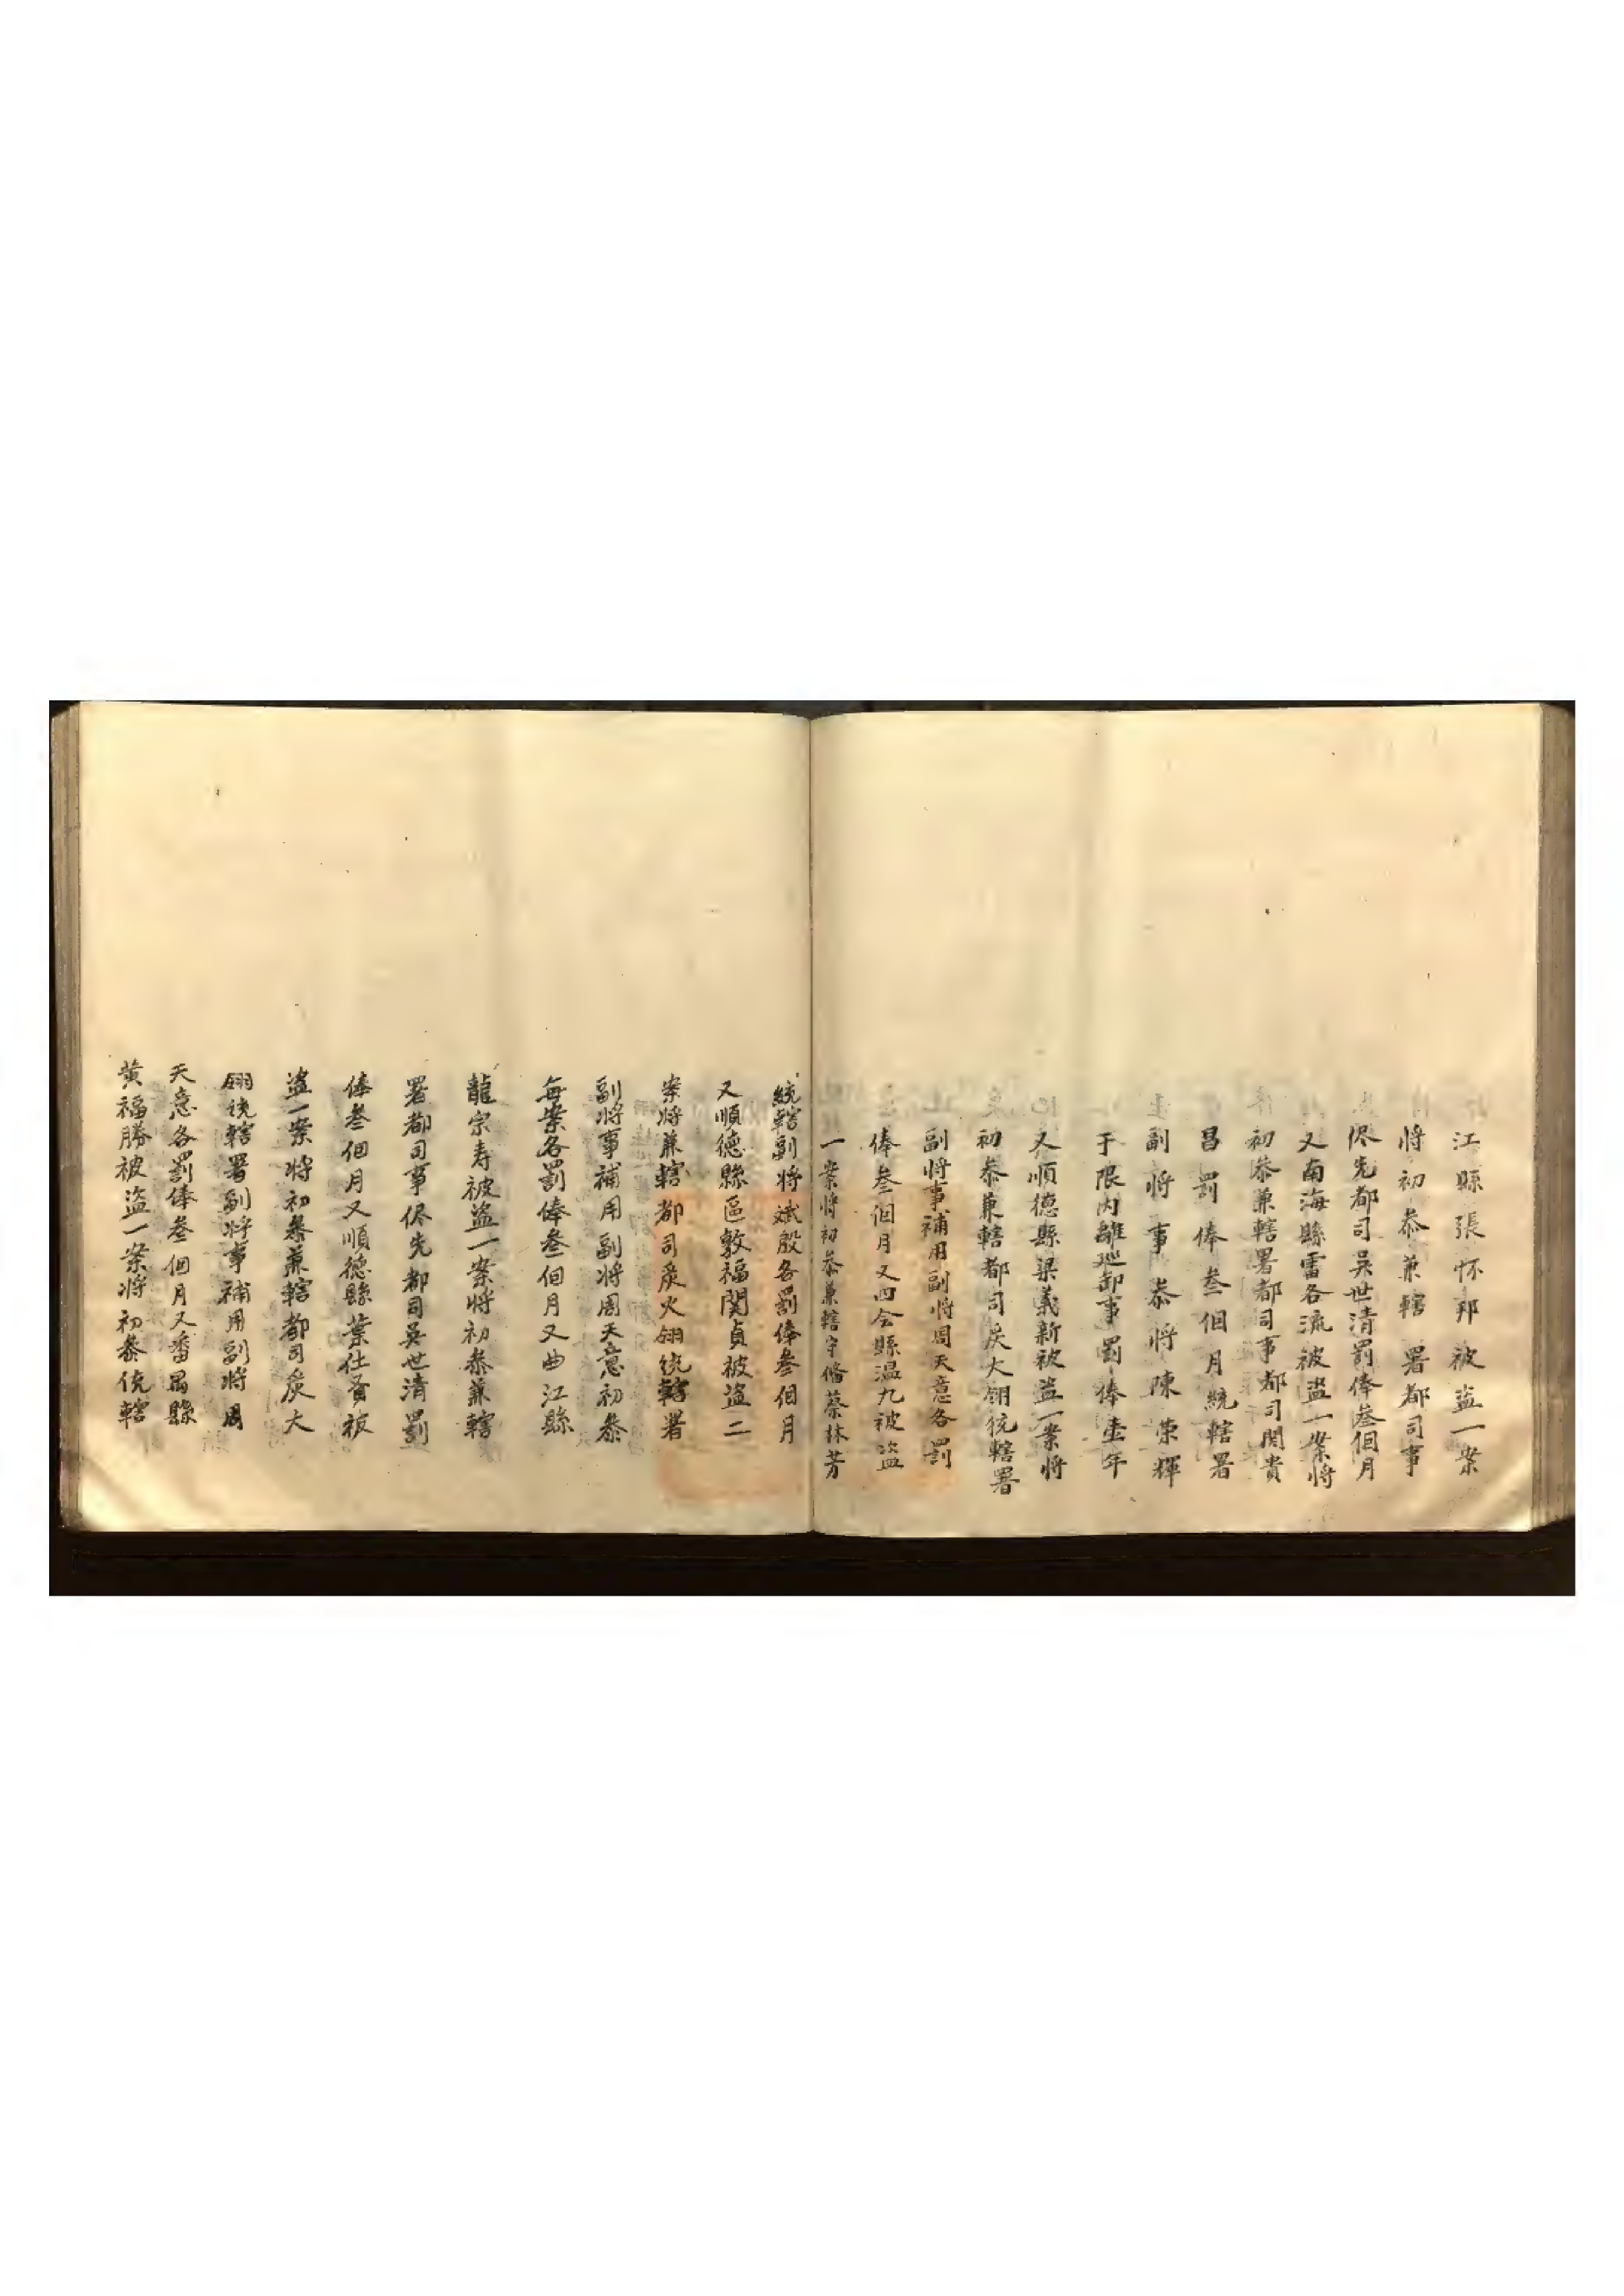 江縣張怀邦被盗一案
將初叅兼轄署都司事
侭先都司吴世清罰俸叁個月
又南海縣雷各流被盗一案將
初叅兼轄署都司事都司関貴
昌罰俸叁個月統轄署
副將事叅將陳荣輝
于限内離廵卸事罰俸壹年
又順德縣梁義新被盗一案將
初叅兼轄都司炭大翎統轄署
副將事補用副將周天意各罰
俸叁個月又四会縣温九被盗
一案將初叅兼轄守偹蔡林芳
統轄副將斌殷各罰俸叁個月
又順德縣區敦福関貞被盗二
案將兼轄都司炭火翎統轄署
副將事補用副將周天意初叅
每案各罰俸叁個月又曲江縣
龍宗寿被盗一案將初叅兼轄
署都司事侭先都司吴世清罰
俸叁個月又順德縣葉仕蚤被
盗一案將初叅兼轄都司炭大
翎統轄署副將事補用副將周
天意各罰俸叁個月又番禺縣
黄福勝被盗一案將初叅統轄